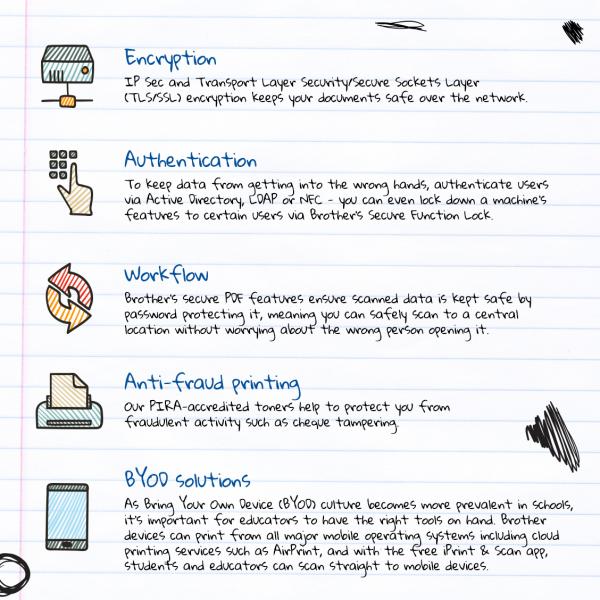 Encryption
IP Sec and Transport Layer Security/Secure Sockets Layer
(TLS/SSL) encryption keeps your documents safe over the network.
Authentication
To keep data from getting into the wrong hands, authenticate users
via Active Directory, LDAP or NFC - you can even lock down a machine's
features to certain users via Brother's Secure Function Lock.
Workflow
Brother's secure PDF features ensure scanned data is kept safe by
password protecting it, meaning you can safely scan to a central
location without worrying about the wrong person opening it.
Anti-fraud printing
Our PIRA-accredited toners help to protect you from
fraudulent activity such as cheque tampering.
BYOD solutions
As Bring Your Own Device (BYOD) culture becomes more prevalent in schools,
it's important for educators to have the right tools on hand. Brother
devices can print from all major mobile operating systems including cloud
printing services such as AirPrint, and with the free iPrint & Scan app,
students and educators can scan straight to mobile devices.